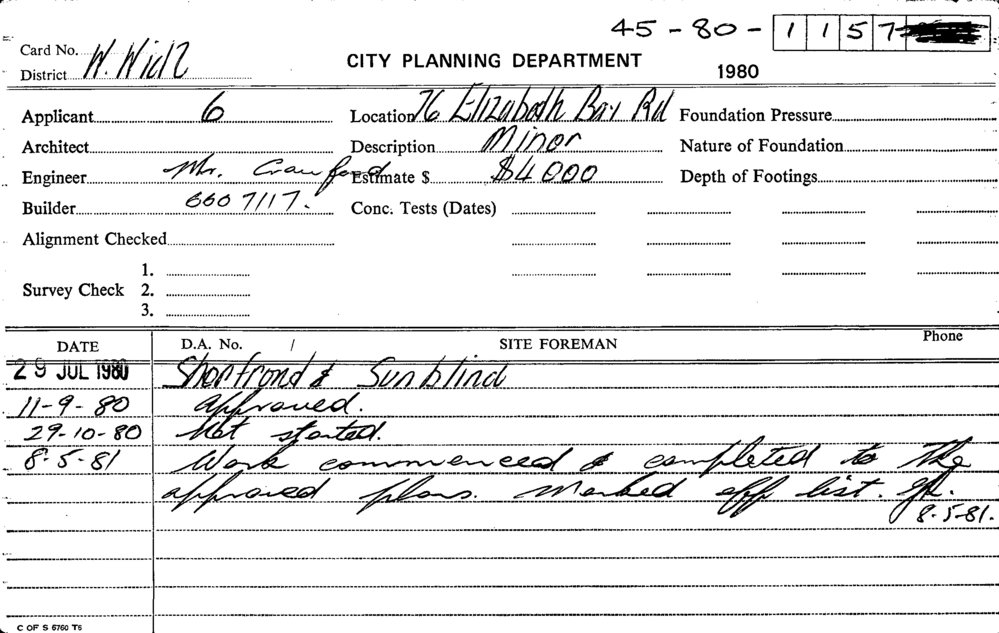 45-80-1157
Card No.
District W. Widl
CITY PLANNING DEPARTMENT
1980
Applicant 6
Location 76 Elizabeth Bay Rd
Foundation Pressure
Architect
Description Minor
Nature of Foundation
Engineer Mr. Crawford
Estimate $ $4 000
Depth of Footings
Builder 660 7117.
Conc. Tests (Dates)
Alignment Checked
Survey Check
1.
2.
3.
DATE
D.A. No. /
SITE FOREMAN
Phone
29 JUL 1980 Shopfront & Sunblind
11-9-80 approved.
29-10-80 Not started.
8-5-81 Work commenced & completed to the
approved plans. Marked off list.
8-5-81.
C OF S 6760 T6